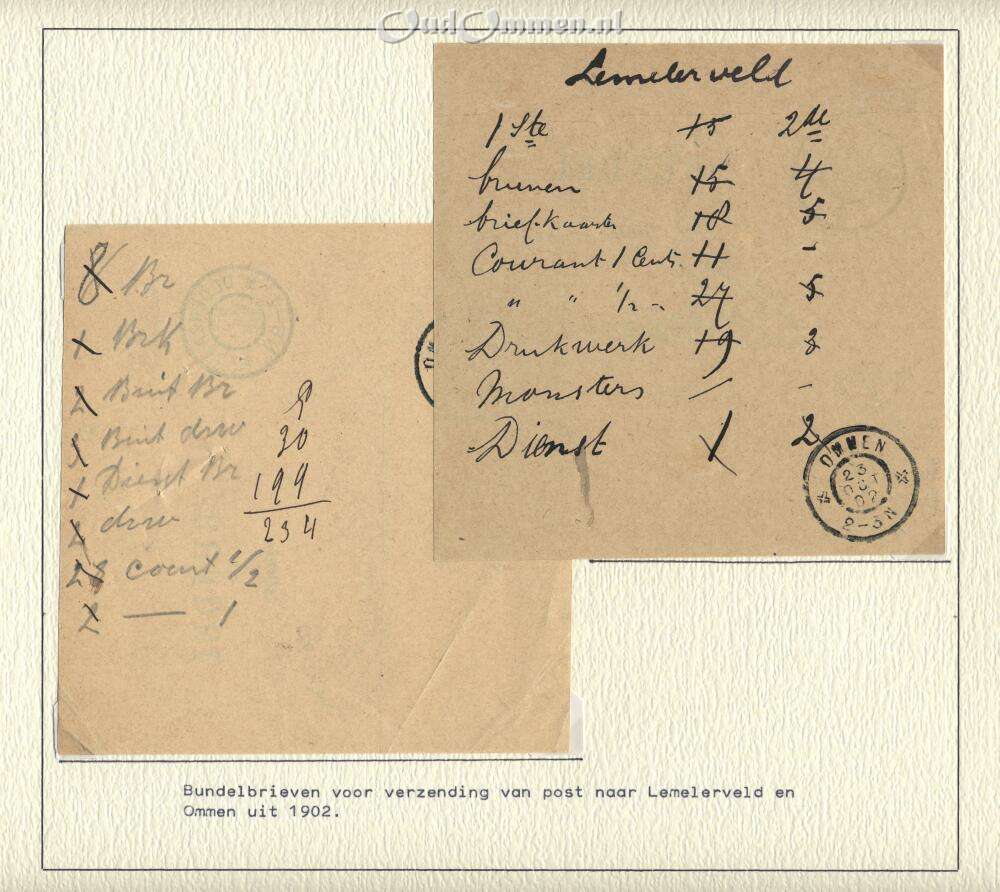 OudOmmen.nl
Lemelerveld
1 Ste 15 2de
brieven 15 4
briefkaarten 18 5
Courant 1 Cents. 11 -
" " 1/2 - 27 5
Drukwerk 19 3
Monsters / -
Dienst 1 2
OMMEN
2-3N
Br
BrK
Buit Br
Buit drw
30
Dienst Br
199
drw
234
28 Cour 1/2
2 — 1
Bundelbrieven voor verzending van post naar Lemelerveld en
Ommen uit 1902.